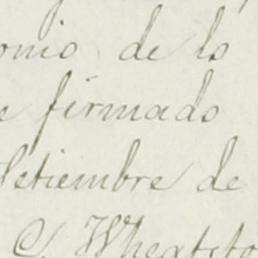 onio de lo
e firmado
Setiembre de
C Wheatsto